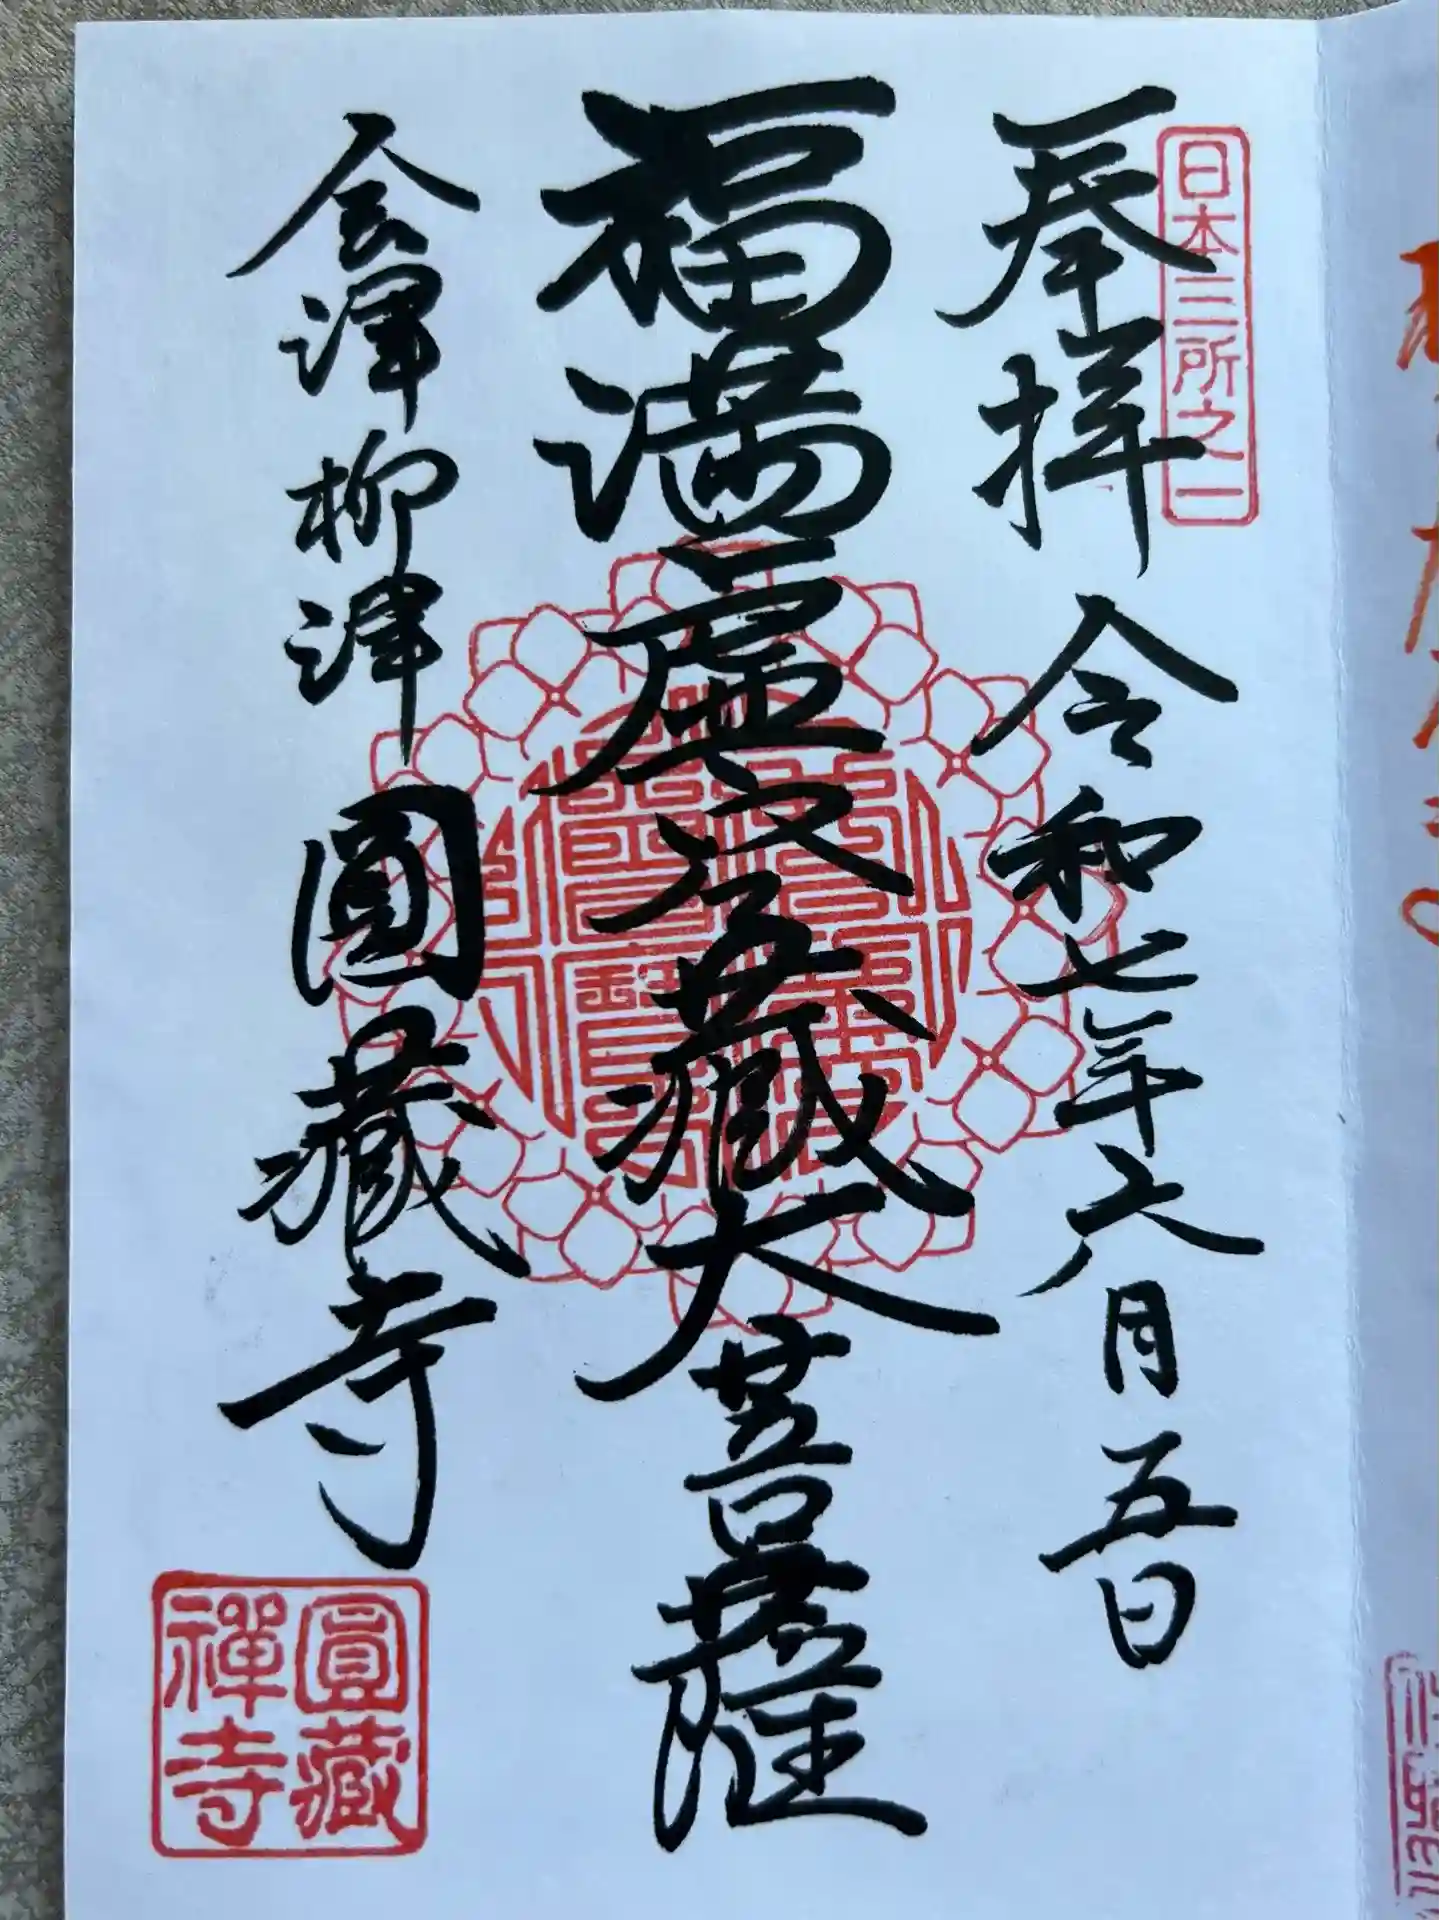 日本三所之一
奉拝 令和七年六月五日
福満虚空蔵大菩薩
会津柳津 圓藏寺
圓藏
禅寺